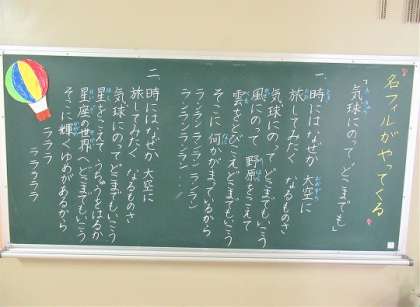 名フィルがやってくる
「気球にのってどこまでも」
一、時にはなぜか 大空に
旅してみたく なるものさ
気球にのって どこまでいこう
風にのって 野原をこえて
雲をとびこえ どこまでもいこう
そこに 何かが まっているから
ランランランランランランラン
ランランランラン
二、時にはなぜか 大空に
旅してみたく なるものさ
気球にのって どこまでもいこう
星をこえて うちゅうをはるか
星座の世界へ どこまでもいこう
そこに 輝く ゆめがあるから
ラララ
ララララ